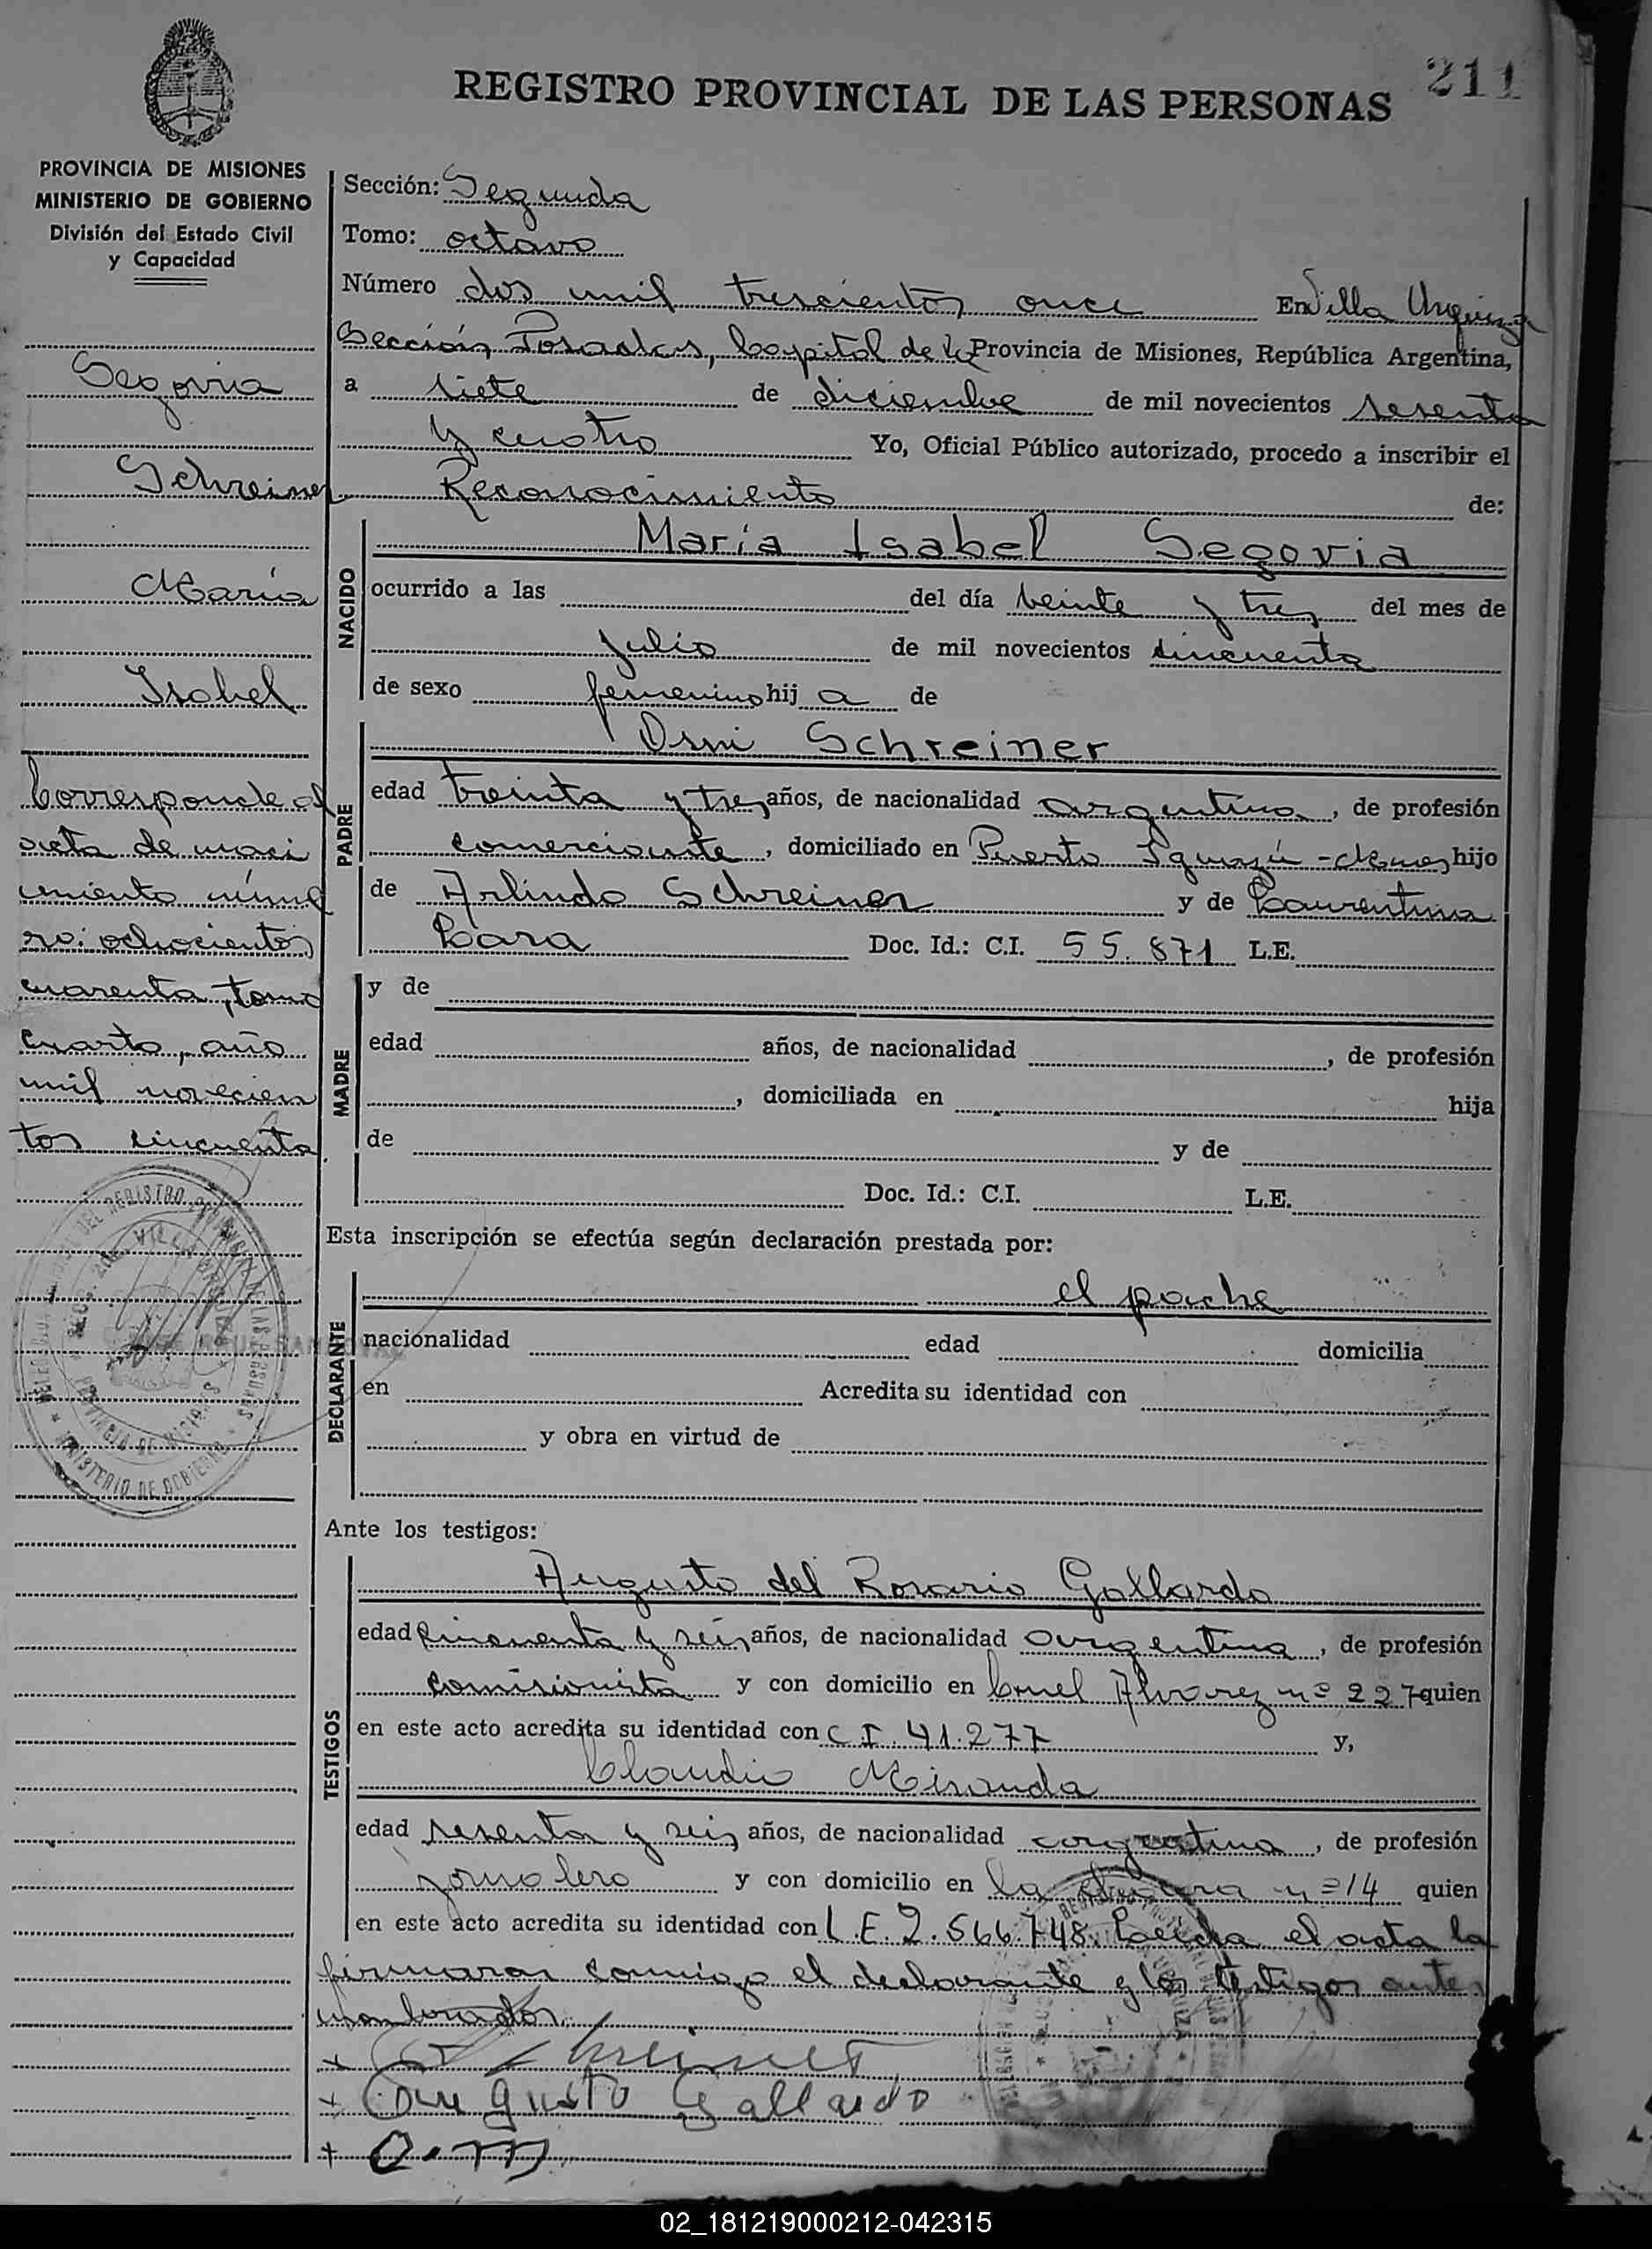 211
REGISTRO PROVINCIAL DE LAS PERSONAS
PROVINCIA DE MISIONES
MINISTERIO DE GOBIERNO
División del Estado Civil
y Capacidad
Segovia
Schreiner
María
Isabel
Corresponde al
acta de naci
miento núme
ro: ochocientos
cuarenta, tomo
cuarto, año
mil novecien
tos cincuenta
Sección: Segunda
Tomo: octavo
Número dos mil trescientos once En Villa Urquiza
Sección Posadas, Capital de la Provincia de Misiones, República Argentina,
a siete de diciembre de mil novecientos sesenta
y cuatro Yo, Oficial Público autorizado, procedo a inscribir el
Reconocimiento de:
NACIDO
María Isabel Segovia
ocurrido a las del día veinte y tres del mes de
julio de mil novecientos cincuenta
de sexo femenino hij a de
PADRE
Osni Schreiner
edad treinta y tres años, de nacionalidad argentina, de profesión
comerciante, domiciliado en Puerto Iguazú - Mnes hijo
de Arlindo Schreiner y de Laurentina
Lara Doc. Id.: C.I. 55.871 L.E.
MADRE
y de
edad años, de nacionalidad , de profesión
, domiciliada en hija
de y de
Doc. Id.: C.I. L.E.
Esta inscripción se efectúa según declaración prestada por:
DECLARANTE
el padre
nacionalidad edad domicilia
en Acredita su identidad con
y obra en virtud de
Ante los testigos:
TESTIGOS
Augusto del Rosario Gallardo
edad cincuenta y seis años, de nacionalidad argentina, de profesión
comisionista y con domicilio en Cnel Alvarez nº 227 quien
en este acto acredita su identidad con C I. 41.277 y,
Claudio Miranda
edad sesenta y seis años, de nacionalidad argentina, de profesión
jornalero y con domicilio en la nº 14 quien
en este acto acredita su identidad con L.E. 2.566.748. Leída el acta la
firmaron conmigo el declarante y los testigos antes
nombrados.
+ Schreiner
+ Augusto Gallardo
+ C. M
02_181219000212-042315